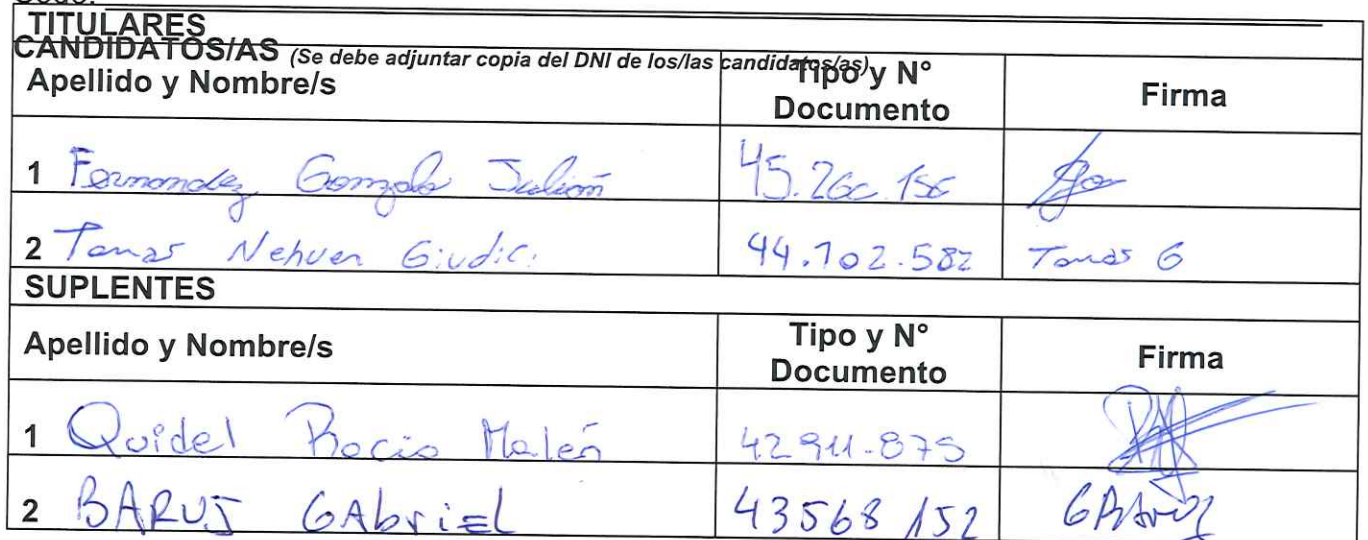 TITULARES
CANDIDATOS/AS (Se debe adjuntar copia del DNI de los/las candidatos/as)
Apellido y Nombre/s Tipo y N° Documento Firma
1 Fernandez Gonzalo Julián
2 Tomas Nehuen Giudici 44.102.582 Tomas G
SUPLENTES
Apellido y Nombre/s Tipo y N° Documento Firma
1 Quidel Rocio Malén 42.911.875
2 Gabriel 43568152